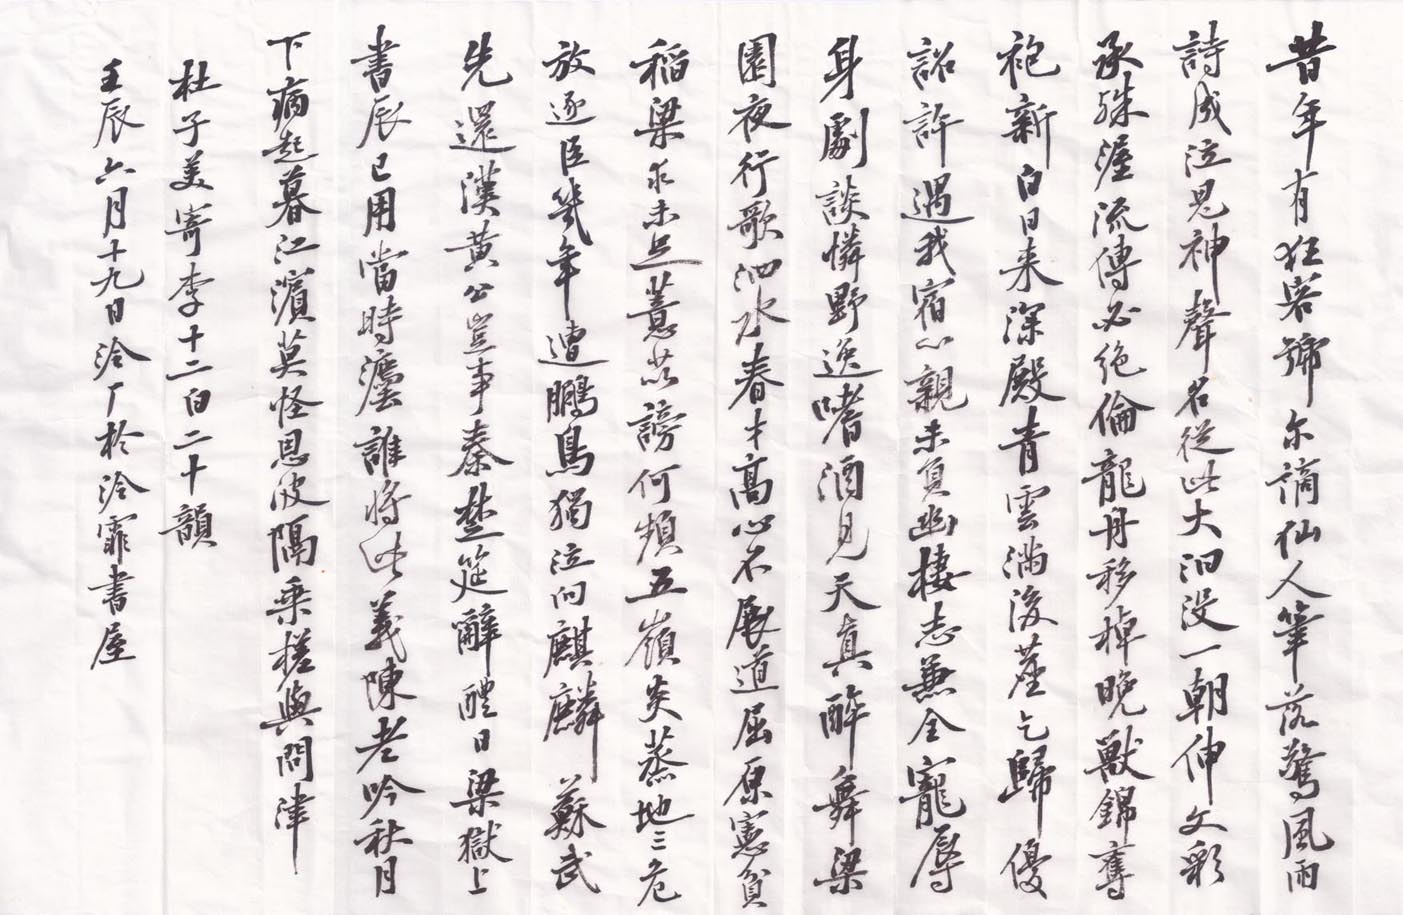 昔年有狂客號尔謫仙人筆落驚風雨
詩成泣鬼神聲名從此大汩没一朝伸文彩
承殊渥流傳必絕倫龍舟移棹晚獸錦奪
袍新白日来深殿青雲滿後塵乞歸優
詔許遇我宿心親未負幽棲志兼全寵辱
身劇談憐野逸嗜酒見天真醉舞梁
園夜行歌泗水春才高心不展道屈原憲貧
稻粱求未足薏苡謗何頻五嶺炎蒸地三危
放逐臣幾年遭鵬鳥獨泣向麒麟蘇武
先還漢黄公豈事秦楚筵辭醴日梁獄上
書辰已用當時灋誰將此義陳老吟秋月
下病起暮江濱莫怪恩波隔乘槎與問津
杜子美寄李十二白二十韻
壬辰六月十九日泠厂於泠霏書屋